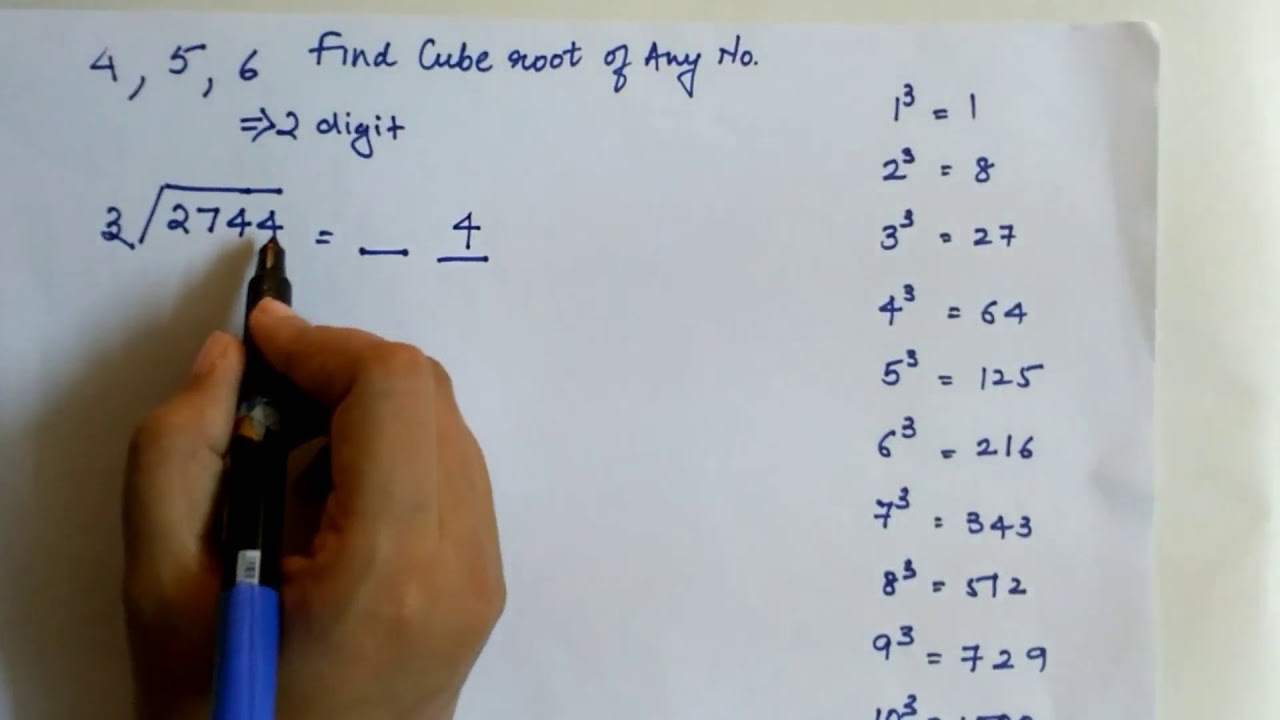 4, 5, 6 Find Cube root of Any No.
⇒2 digit
3√2744 = _ 4
1³ = 1
2³ = 8
3³ = 27
4³ = 64
5³ = 125
6³ = 216
7³ = 343
8³ = 512
9³ = 729
10³